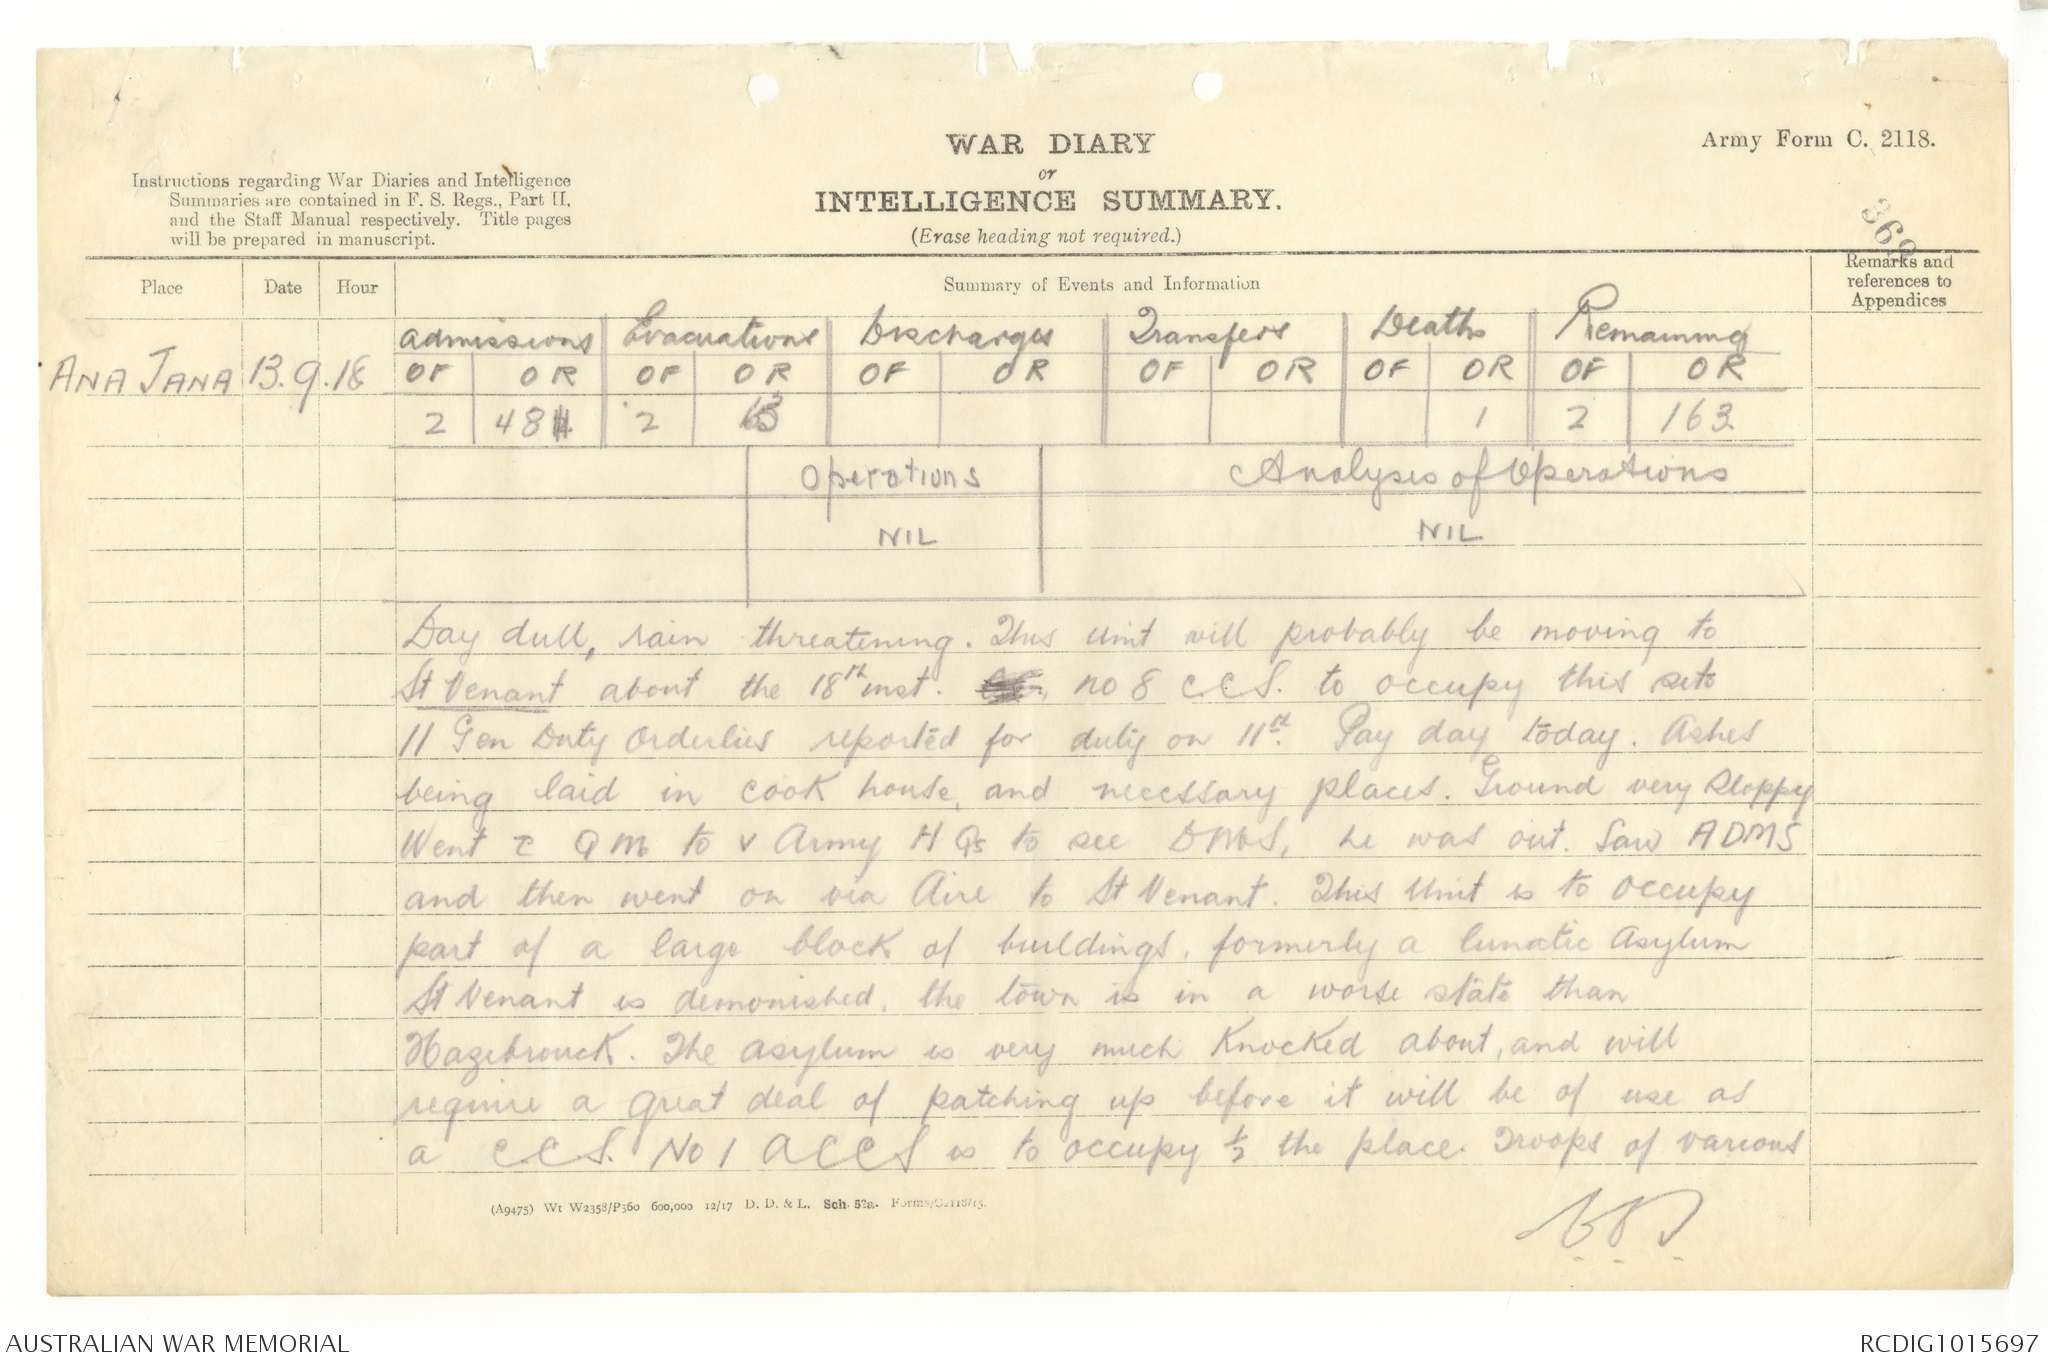 WAR DIARY
or
INTELLIGENCE SUMMARY.
(Erase heading not required.)
Army Form C. 2118.
Instructions regarding War Diaries and Intelligence
Summaries are contained in F. S. Regs., Part II.
and the Staff Manual respectively. Title pages
will be prepared in manuscript.
Place Date Hour Summary of Events and Information Remarks and
references to
Appendices
Admissions Evacuations Discharges Transfers Deaths Remaining
ANA JANA 13.9.18 OF OR OF OR OF OR OF OR OF OR OF OR
2 48 2 1 2 163
Operations Analyses of Operations
NIL NIL
Day dull, rain threatening. This unit will probably be moving to
St Venant about the 18th inst. no 8 CCS. to occupy this site
11 Gen Duty Orderlies reported for duty on 11th. Pay day today. Ashes
being laid in cook house, and necessary places. Ground very sloppy
Went c̄ QM to V Army HQs to see DMS, he was out. Saw ADMS
and then went on via Aire to St Venant. This Unit is to occupy
part of a large block of buildings, formerly a lunatic Asylum
St Venant is demonished, the town is in a worse state than
Hazebrouck. The asylum is very much knocked about, and will
require a great deal of patching up before it will be of use as
a CCS. No 1 ACCS is to occupy ½ the place. Troops of various
(A9475) Wt W2358/P360 600,000 12/17 D. D. & L. Sch. 52a. Forms/C2118/15.
AUSTRALIAN WAR MEMORIAL
RCDIG1015697